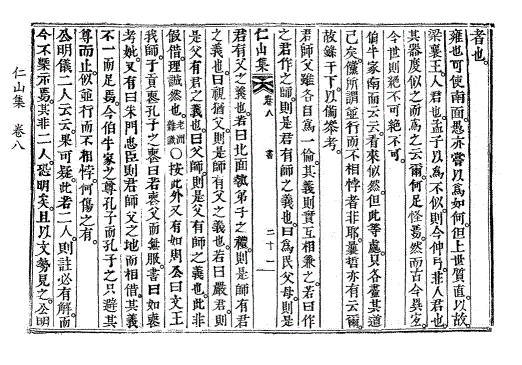 者也
雍也可使南面愚亦嘗以爲如何但上世質直以故
梁襄王人君也孟子以爲不似則今仲弓非人君也
其器度似之而爲之云爾何足怪焉然而古今異宜
今世則絶不可絶不可
伯牛家南面云云看來似然但此等處只各盡其道
己矣儻所謂並行而不相悖者非耶曩哲亦有云爾
故錄于下以備參考
君師父雖各自爲一倫其義則實互相兼之若曰作
之君作之師則是君有師之義也曰爲民父母則是
仁山集 卷八 書 二十一
君有父之義也若曰北面執弟子之禮則是師有君
之義也曰視猶父則是師有父之義也若曰嚴君則
是父有君之義也曰父師則是父有師之義也此非
假借理誠然也 ○按此外又有如周公曰文王
我師子貢喪孔子之喪曰若喪父而無服書曰如喪
考妣又有曰朱門忠臣則君師父之地而相借其義
不一而足焉今伯牛家之尊孔子而孔子之只避其
尊而止似並行而不相悖何傷之有
公明儀二人云云果可疑此者二人則註必有解而
今不槩示焉其非二人恐明矣且以文勢見之公明
仁山集 卷八